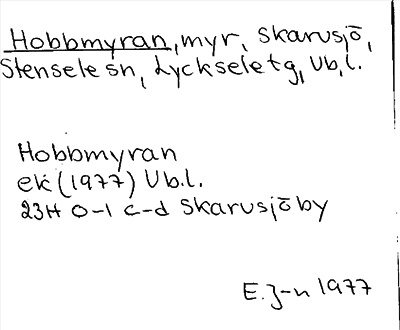 Hobbmyran, myr, Skarusjö,
Stensele sn, Lycksele tg, Vb.l.
Hobbmyran
ek (1977) Vb.l.
23H 0-1 c-d Skarusjöby
E. J-n 1977